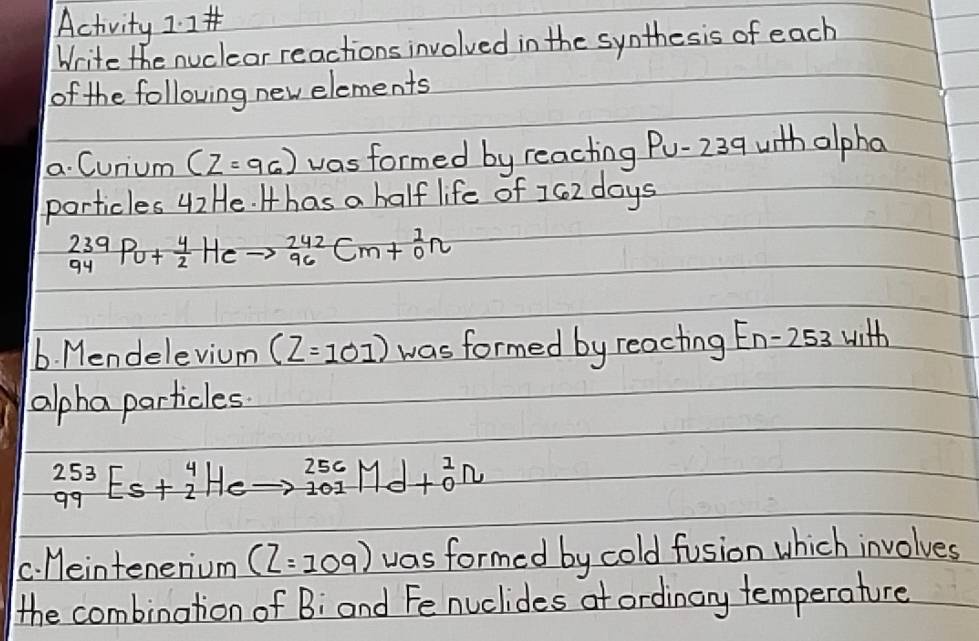 Activity 1.1#
Write the nuclear reactions involved in the synthesis of each
of the following new elements
a. Curium (Z=96) was formed by reacting Pu-239 with alpha
particles 42He. It has a half life of 162 days
²³⁹₉₄Pu + ⁴₂He → ²⁴²₉₆Cm + ¹₀n
b. Mendelevium (Z=101) was formed by reacting En-253 with
alpha particles.
²⁵³₉₉Es + ⁴₂He → ²⁵⁶₁₀₁Md + ¹₀n
c. Meintenerium (Z=109) was formed by cold fusion which involves
the combination of Bi and Fe nuclides at ordinary temperature